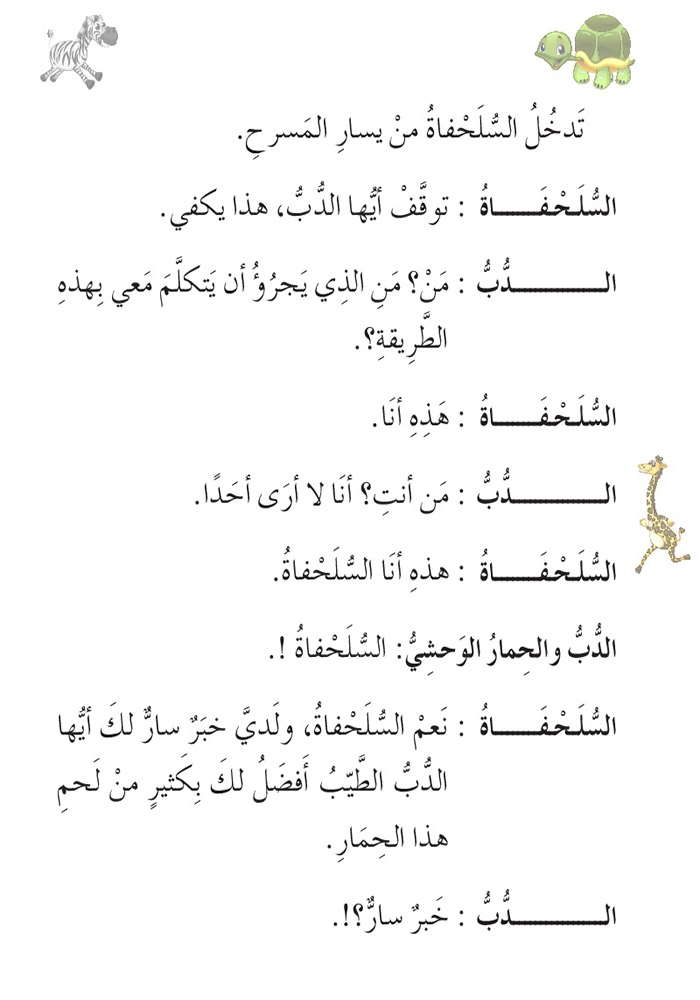 تَدخُلُ السُّلَحْفاةُ منْ يسارِ المَسرحِ.
السُّلَحْفَـــــاةُ : توقَّفْ أيُّها الدُّبُّ، هذا يكفي.
الـــــــــــدُّبُّ : مَنْ؟ مَنِ الذِي يَجرُؤُ أن يَتكلَّمَ مَعي بِهذهِ
الطَّرِيقةِ؟.
السُّلَحْفَـــــاةُ : هَذِهِ أنَا.
الـــــــــــدُّبُّ : مَن أنتِ؟ أنَا لا أرَى أحَدًا.
السُّلَحْفَـــــاةُ : هذهِ أنَا السُّلَحْفاةُ.
الدُّبُّ والحِمارُ الوَحشِيُّ: السُّلَحْفاةُ !.
السُّلَحْفَـــــاةُ : نَعمْ السُّلَحْفاةُ، ولَديَّ خبَرٌ سارٌّ لكَ أيُّها
الدُّبُّ الطَّيّبُ أَفضَلُ لكَ بِكَثيرٍ منْ لَحمِ
هذا الحِمَارِ.
الـــــــــــدُّبُّ : خَبرٌ سارٌّ؟!.